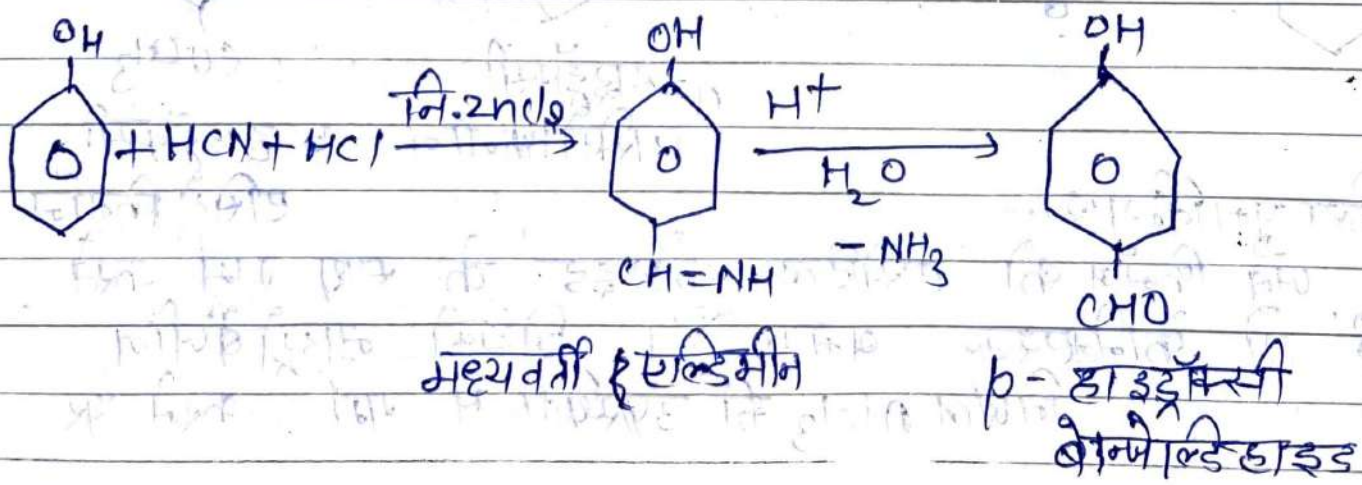 OH OH OH
O + HCN + HCl नि. ZnCl2 O H+ O
H2O
- NH3
CH=NH
CHO
मध्यवर्ती एल्डिमीन p- हाइड्रॉक्सी
बेन्जेल्डिहाइड